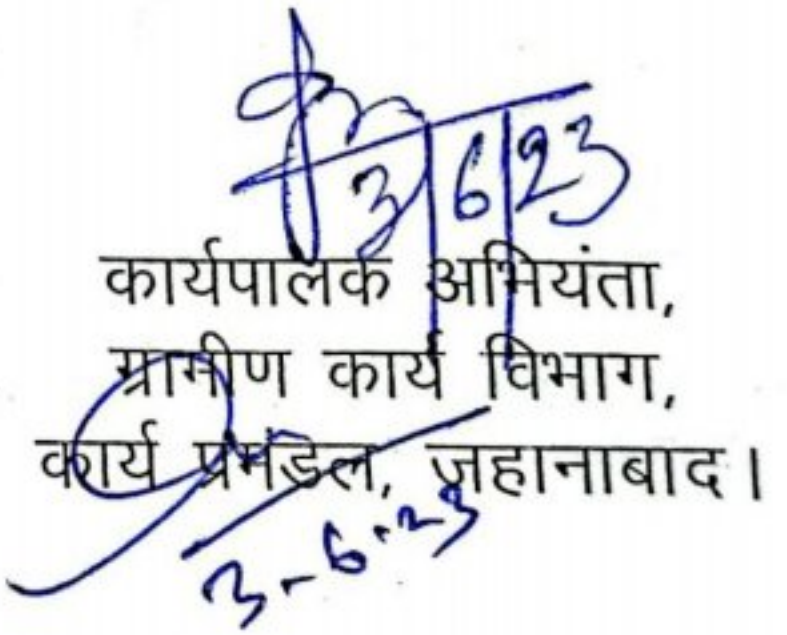 3 | 6 | 23
कार्यपालक अभियंता,
ग्रामीण कार्य विभाग,
कार्य प्रमंडल, जहानाबाद।
3-6-23